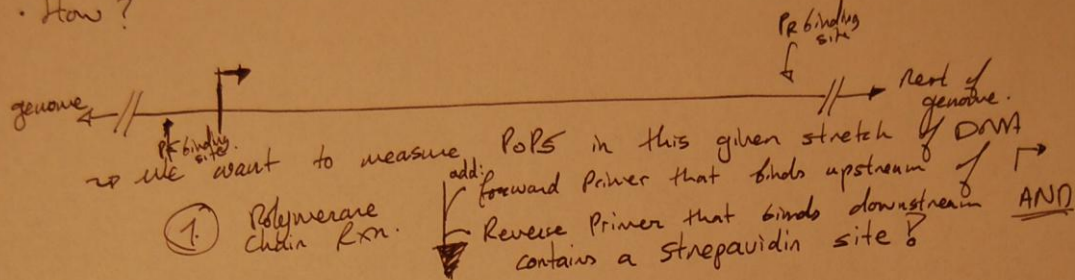 · How?
PR binding
site
genome
Rest of
genome.
PF binding
site.
we want to measure PoPS in this given stretch of DNA
① Polymerase
Chain Rxn.
add:
forward Primer that binds upstream of
Reverse Primer that binds downstream AND
contains a strepavidin site!